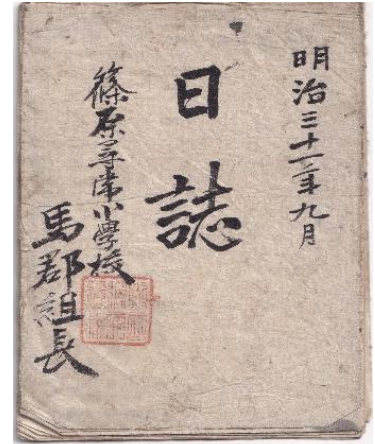 明治三十一年九月
日誌
篠原尋常小學校
馬郡組長